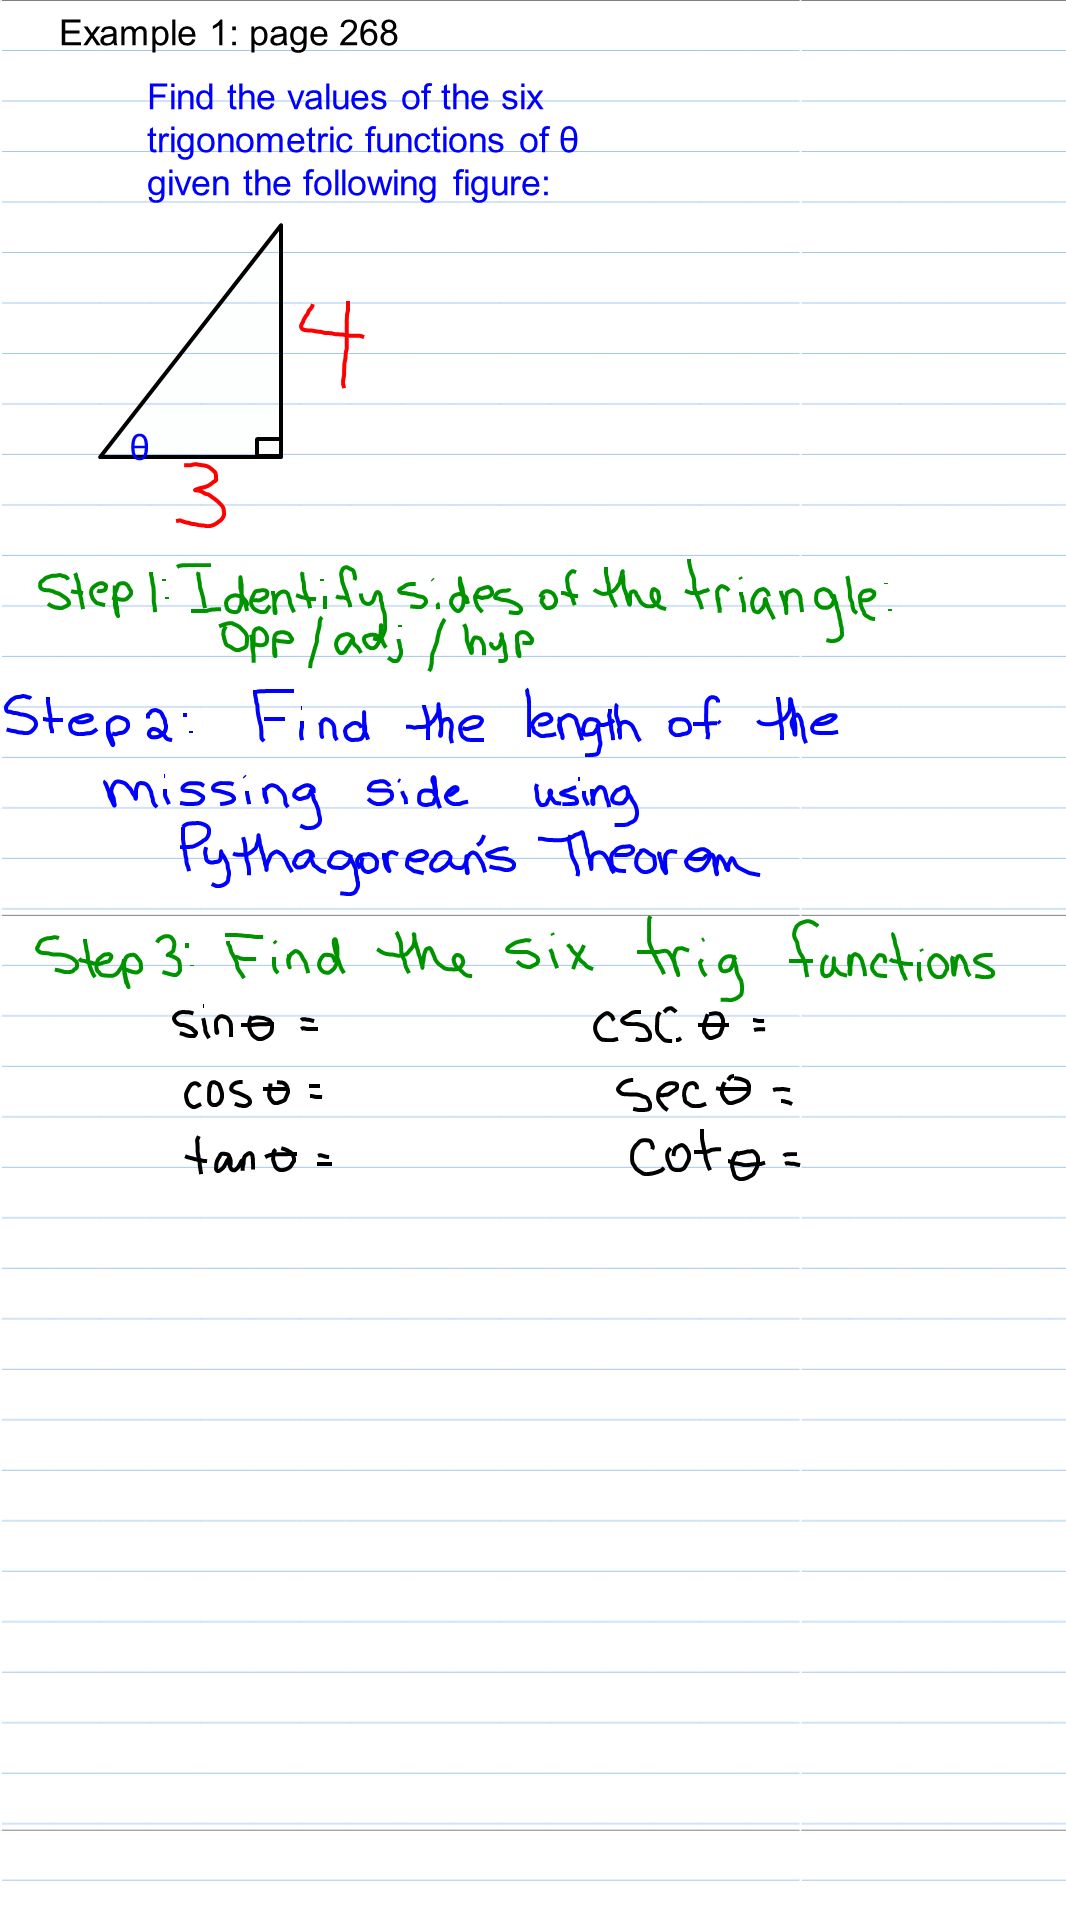 Example 1: page 268
Find the values of the six
trigonometric functions of θ
given the following figure:
4
θ
3
Step 1: Identify sides of the triangle:
opp / adj / hyp
Step 2: Find the length of the
missing side using
Pythagorean's Theorem
Step 3: Find the six trig functions
sin θ = csc θ =
cos θ = sec θ =
tan θ = cot θ =